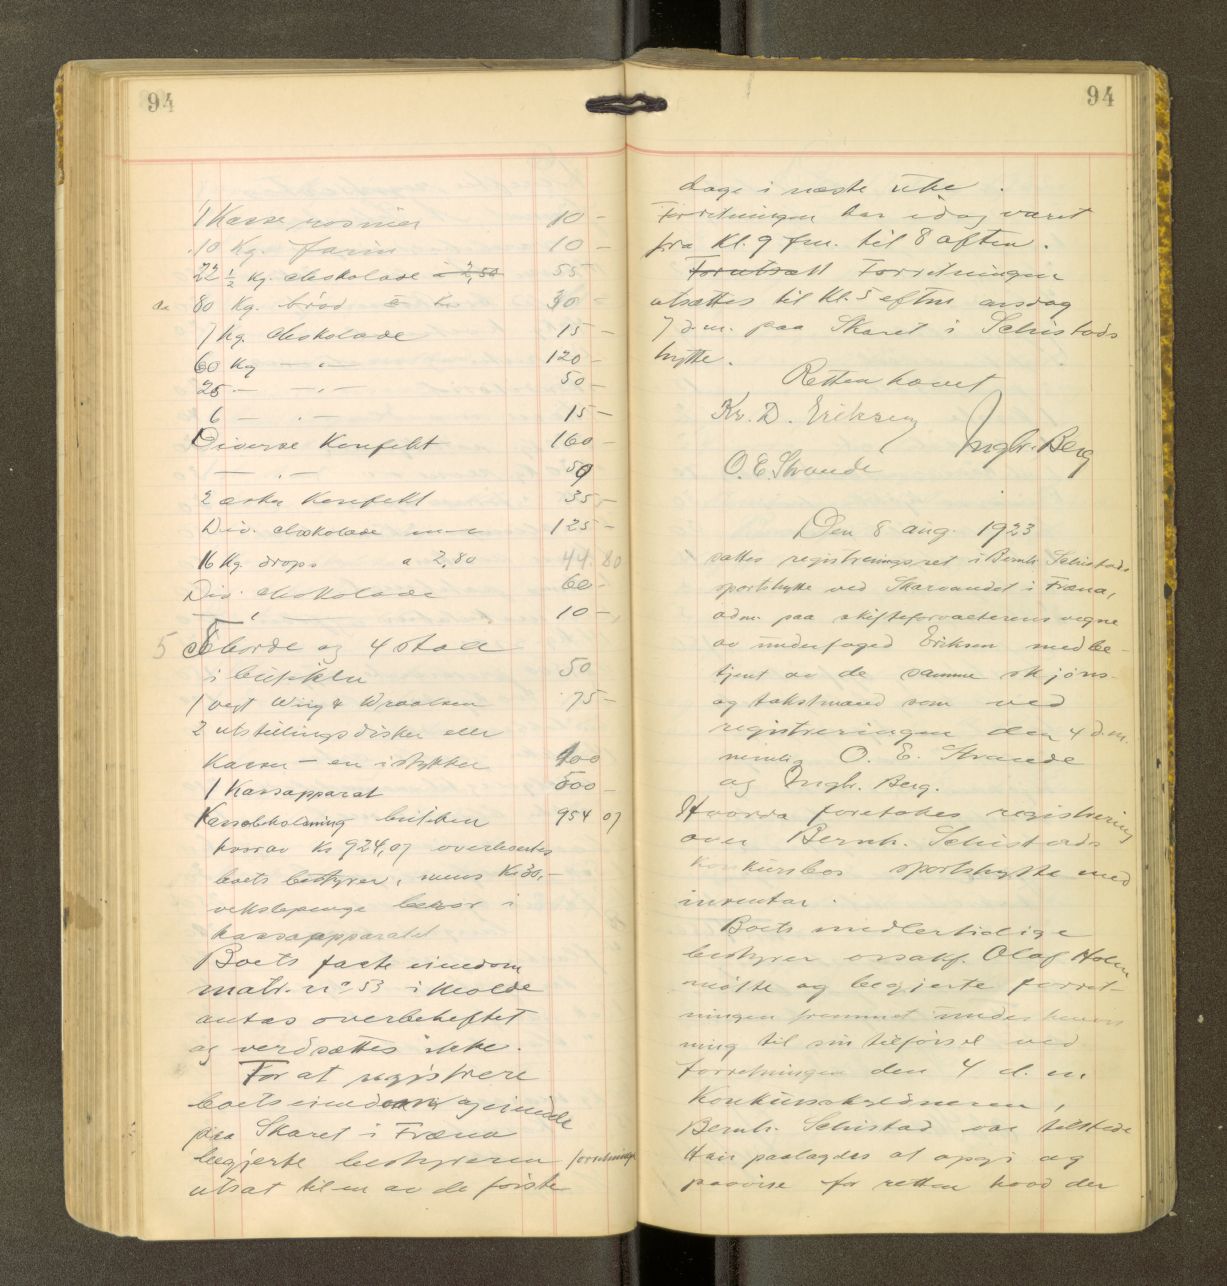 94
1 Kasse rosiner 10 –
10 Kg. farin 10 –
22 ½ Kg. chokolade a 2,50 55 –
80 Kg. brød 30 –
7 Kg. chokolade 15 –
60 Kg – " – 120 –
25 – – " – 50 –
6 – – " – 15 –
Diverse Konfekt 160 –
– " – 50
2 æsker Konfekt 35 –
Div. chokolade 125 –
16 Kg. drops a 2,80 44.80
Div. chokolade 60 –
– " – 10 –
5 borde og 4 stole
i butikken 50
1 vegt Wiig & Wraalsen 75 –
2 utstillingsdisker eller
Kasser – en i stykker 100
1 Kasseapparat 500 –
Kassebeholdning butikken 954 07
hvorav Kr 924,07 overleveres
boets bestyrer, mens Kr 30,–
vekslepenge beror i
kasseapparatet
Boets faste eiendom
matr. nº 53 i Molde
antas overbeheftet
og verdsættes ikke.
For at registrere
boets eiendom og eiendele
paa Skaret i Fræna
begjerte bestyreren forretningen
utsat til en av de første
94
dage i næste uke.
Forretningen har idag været
fra Kl. 9 fm. til 8 aften.
Forutsatt Forretningen
utsættes til Kl. 5 eftm onsdag
7 d.m. paa Skaret i Schistads
hytte.
Retten hævet
Kr. D. Eriksen
Ingbr. Berg
O. E. Strande
Den 8 aug. 1923
sattes registreringsret i Bernh. Schistads
sportshytte ved Skarvandet i Fræna,
adm. paa skifteforvalterens vegne
av underfoged Eriksen med be-
tjent av de samme skjøns-
og takstmænd som ved
registreringen den 4 d.m.
nemlig O. E. Strande
og Ingbr. Berg.
Hvorda foretokes registrering
over Bernh. Schistads
konkursbos sportshytte med
inventar.
Boets midlertidige
bestyrer o.r.sakf. Olaf Holm
møtte og begjerte forret-
ningen fremmet under henvis
ning til sin tilførsel ved
forretningen den 4 d.m.
Konkursskyldneren,
Bernh. Schistad var tilstede
Han paalagdes at opgi og
paavise for retten hvad der